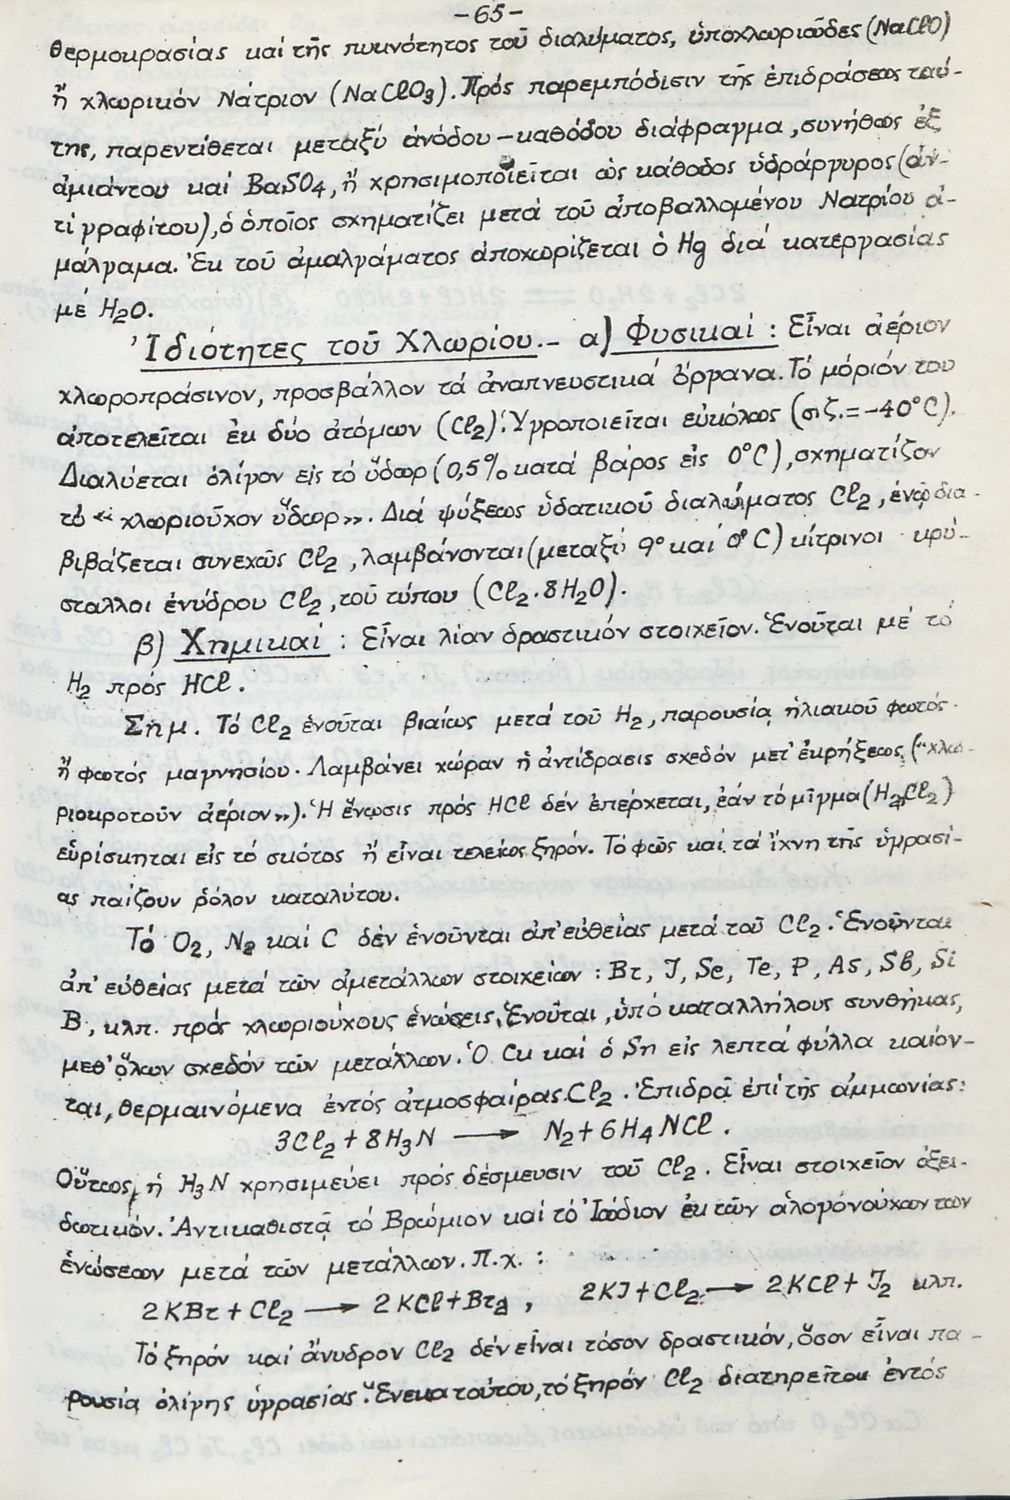 -65-
θερμοκρασίας καί τῆς πυκνότητος τοῦ διαλύματος, ὑποχλωριῶδες (NaClO)
ἤ χλωρικόν Νάτριον (NaClO3). Πρός παρεμπόδισιν τῆς ἐπιδράσεως ταύ-
της, παρεντίθεται μεταξύ ἀνόδου – καθόδου διάφραγμα, συνήθως ἐξ
ἀμιάντου καί BaSO4, ἤ χρησιμοποιεῖται ὡς κάθοδος ὑδράργυρος (ἀν-
τί γραφίτου), ὁ ὁποῖος σχηματίζει μετά τοῦ ἀποβαλλομένου Νατρίου ἀ-
μάλγαμα. Ἐκ τοῦ ἀμαλγάματος ἀποχωρίζεται ὁ Hg διά κατεργασίας
μέ H2O.
Ἰδιότητες τοῦ Χλωρίου.– α) Φυσικαί : Εἶναι ἀέριον
χλωροπράσινον, προσβάλλον τά ἀναπνευστικά ὄργανα. Τό μόριόν του
ἀποτελεῖται ἐκ δύο ἀτόμων (Cl2). Ὑγροποιεῖται εὐκόλως (σιζ.= -40°C).
Διαλύεται ὀλίγον εἰς τό ὕδωρ (0,5% κατά βάρος εἰς 0°C), σχηματίζον
τό « χλωριοῦχον ὕδωρ». Διά ψύξεως ὑδατικοῦ διαλύματος Cl2, ἐνῷ δια-
βιβάζεται συνεχῶς Cl2, λαμβάνονται (μεταξύ 9° καί 0°C) κίτρινοι κρύ-
σταλλοι ἐνύδρου Cl2, τοῦ τύπου (Cl2.8H2O).
β) Χημικαί : Εἶναι λίαν δραστικόν στοιχεῖον. Ἑνοῦται μέ τό
H2 πρός HCl.
Σημ. Τό Cl2 ἑνοῦται βιαίως μετά τοῦ H2, παρουσίᾳ ἡλιακοῦ φωτός
ἤ φωτός μαγνησίου. Λαμβάνει χώραν ἡ ἀντίδρασις σχεδόν μετ' ἐκρήξεως, («χλω-
ριοκροτοῦν ἀέριον»). Ἡ ἕνωσις πρός HCl δέν ἐπέρχεται, ἐάν τό μῖγμα (H2,Cl2)
εὑρίσκηται εἰς τό σκότος ἤ εἶναι τελείως ξηρόν. Τό φῶς καί τά ἴχνη τῆς ὑγρασί-
ας παίζουν ρόλον καταλύτου.
Τό O2, N2 καί C δέν ἑνοῦνται ἀπ' εὐθείας μετά τοῦ Cl2. Ἑνοῦνται
ἀπ' εὐθείας μετά τῶν ἀμετάλλων στοιχείων : Br, J, Se, Te, P, As, Sb, Si
B, κλπ. πρός χλωριούχους ἑνώσεις. Ἑνοῦται, ὑπό καταλλήλους συνθήκας,
μεθ' ὅλων σχεδόν τῶν μετάλλων. Ὁ Cu καί ὁ Sn εἰς λεπτά φύλλα καίον-
ται, θερμαινόμενα ἐντός ἀτμοσφαίρας Cl2. Ἐπιδρᾷ ἐπί τῆς ἀμμωνίας:
3Cl2 + 8H3N ⟶ N2 + 6H4NCl.
Οὕτως, ἡ H3N χρησιμεύει πρός δέσμευσιν τοῦ Cl2. Εἶναι στοιχεῖον ὀξει-
δωτικόν. Ἀντικαθιστᾷ τό Βρώμιον καί τό Ἰώδιον ἐκ τῶν ἁλογονούχων των
ἑνώσεων μετά τῶν μετάλλων. Π.χ. :
2KBr + Cl2 ⟶ 2KCl + Br2, 2KJ + Cl2 ⟶ 2KCl + J2 κλπ.
Τό ξηρόν καί ἄνυδρον Cl2 δέν εἶναι τόσον δραστικόν, ὅσον εἶναι πα-
ρουσίᾳ ὀλίγης ὑγρασίας. Ἕνεκα τούτου, τό ξηρόν Cl2 διατηρεῖται ἐντός